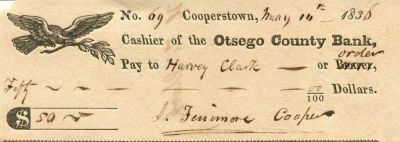 No. 69 Cooperstown, May 14th 1836
Cashier of the Otsego County Bank,
order
Pay to Harvey Clark — or Bearer,
Fifty 00/100 Dollars.
$ 50 J. Fenimore Cooper